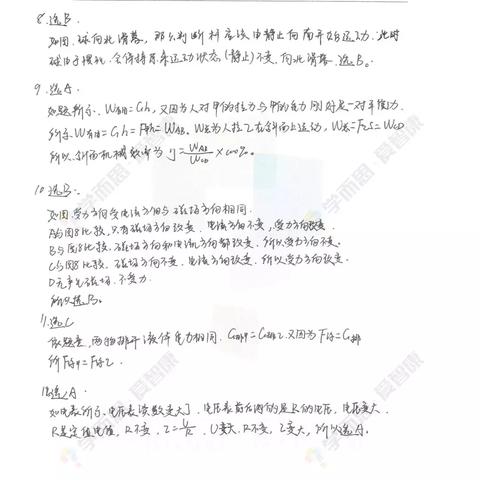 8. 选B.
如图. 球向北滑落, 那么判断料应该由静止向南开始运动. 此时
球由于惯性. 会保持原来运动状态(静止)不变. 向北滑落. 选B。
9. 选A
如题所示. W有用=Gh, 又因为人对甲的拉力与甲的重力刚好是一对平衡力.
所示W有用=Gh=Fh=WAB. W总为人拉乙在斜面上运动, W总=F2S=WCD
所以. 斜面机械效率为 η=WAB/WCD×100%。
10. 选B.
如图. 受力方向与电流方向与磁场方向相同.
A与图8比较, 只有磁场方向改变. 电流方向不变, 受力方向改变.
B与图8比较. 磁场方向和电流方向都改变. 所以受力方向不变.
C与图8比较. 磁场方向不变. 电流方向改变. 所以受力方向改变.
D无磁场. 不受力.
所以选B。
11. 选C
依题意, 两物排开液体重力相同. G排甲=G排乙. 又因为F浮=G排
所F浮甲=F浮乙.
12. 选A.
如电表所示. 电压表读数变大, 电压表前后测的是R的电压, 电压变大.
R是定值电阻, R不变, I=U/R. U变大. R不变, I变大, 所以选A.
学而思 爱智康
学而思 爱智康
学而思 爱智康